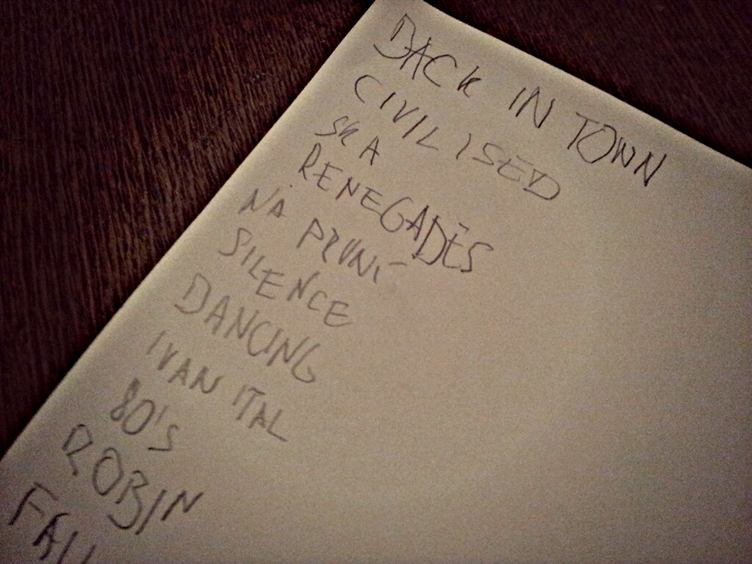 BACK IN TOWN
CIVILISED
SKA
RENEGADES
NA PRVNÍ
SILENCE
DANCING
IVAN ITAL
80'S
ROBIN